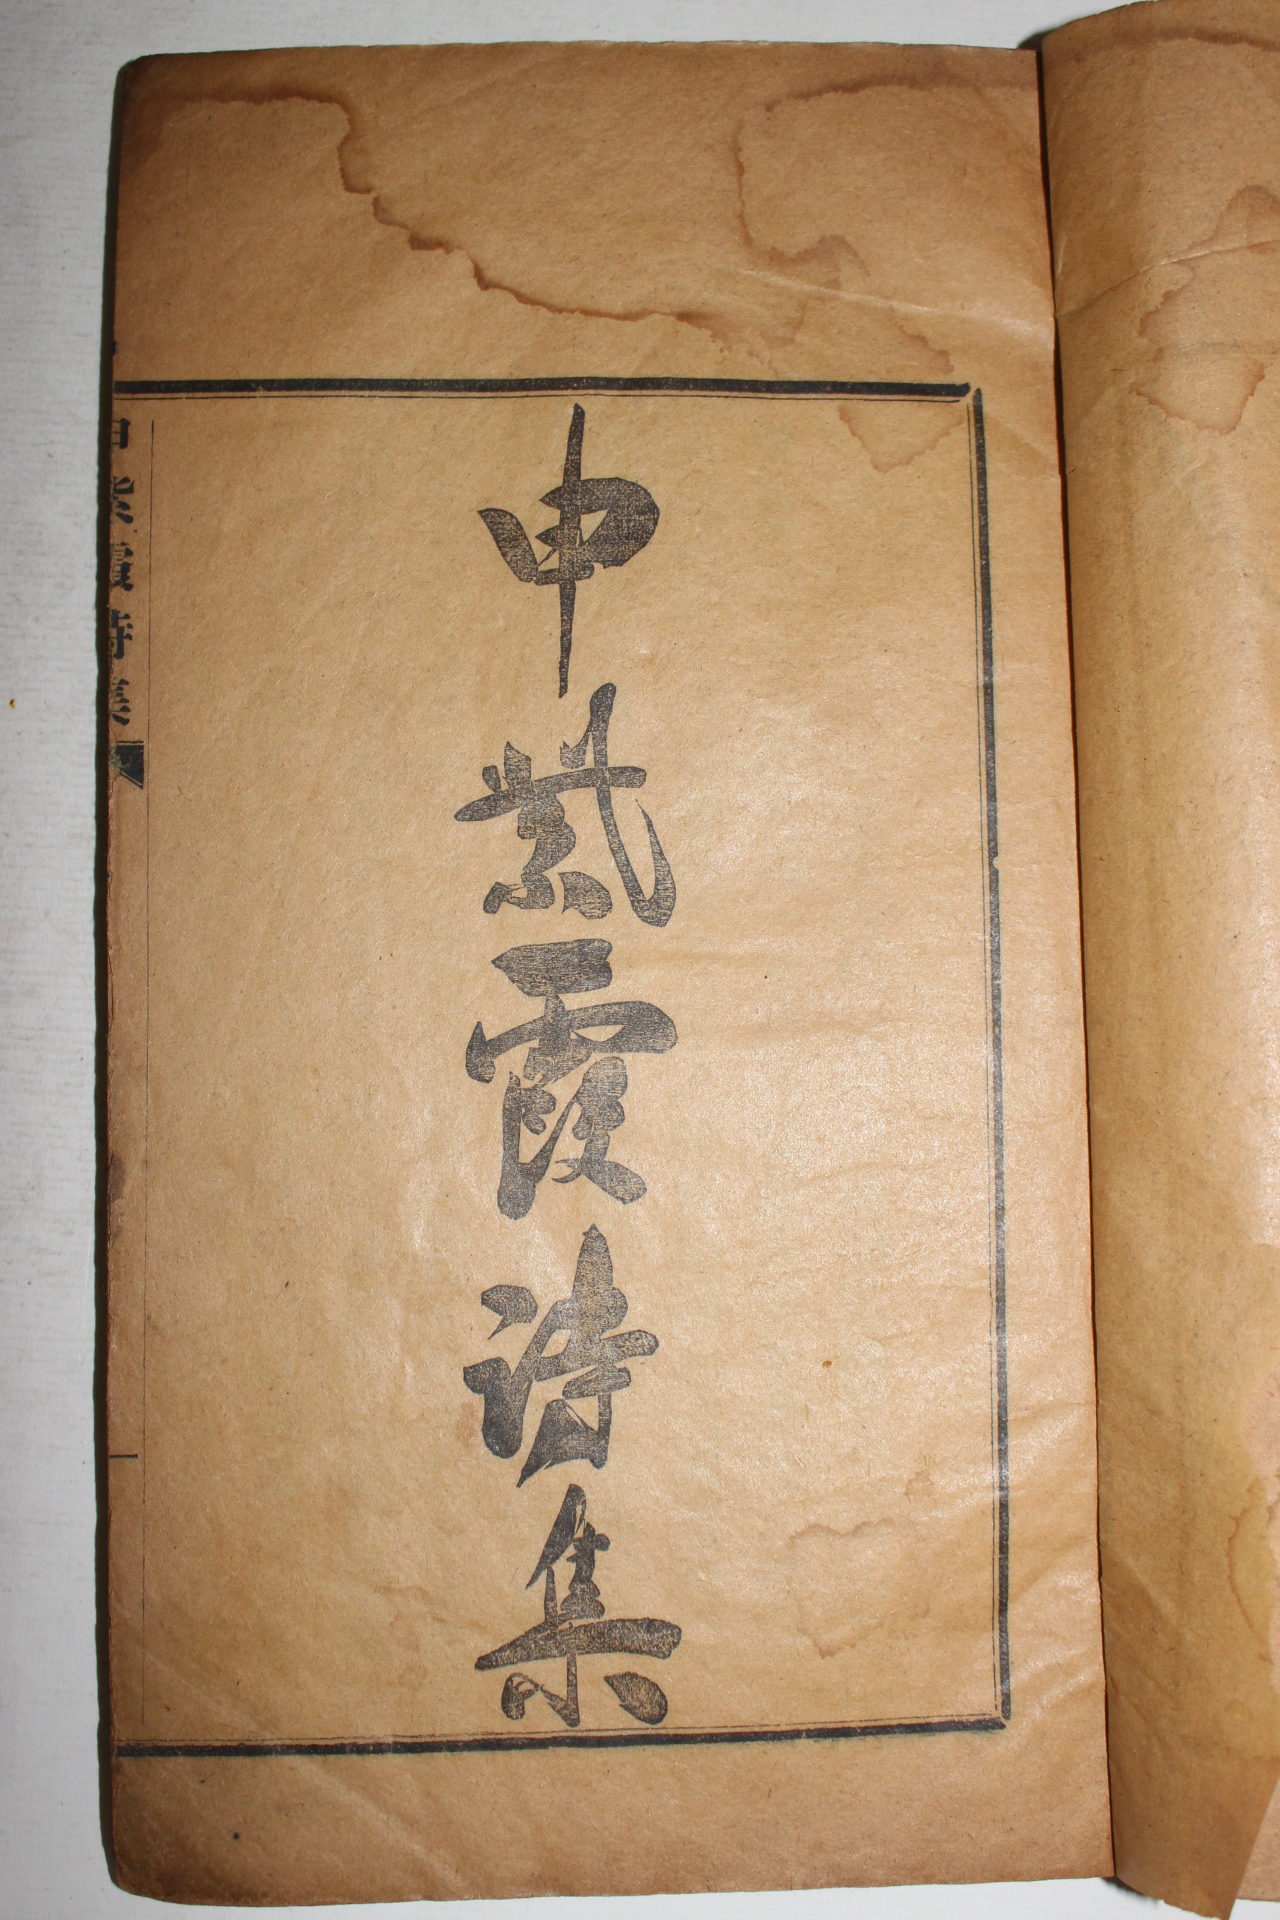 申紫霞詩集
申紫霞詩集
一